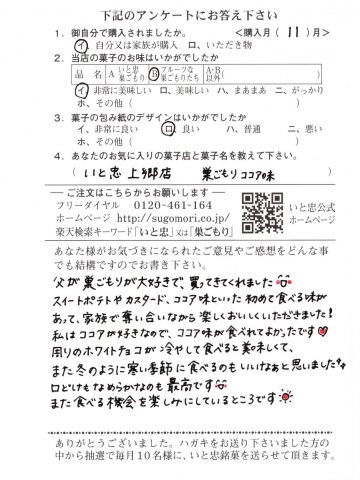 下記のアンケートにお答え下さい
1. 御自分で購入されましたか。 <購入月( 11 )月>
イ、自分又は家族が購入 ロ、いただき物
2. 当店の菓子のお味はいかがでしたか
品 名 A いと忠巣ごもり B フルーツな巣ごもりたち A・B以外( )
イ、非常に美味しい ロ、美味しい ハ、まあまあ ニ、がっかり
ホ、その他( )
3. 菓子の包み紙のデザインはいかがでしたか
イ、非常に良い ロ、良い ハ、普通 ニ、悪い
ホ、その他( )
4. あなたのお気に入りの菓子店と菓子名を教えて下さい。
( いと忠 上郷店 巣ごもり ココア味 )
ご注文はこちらからお願いします
フリーダイヤル 0120-461-164
ホームページ http://sugomori.co.jp/
楽天検索キーワード「いと忠」又は「巣ごもり」
いと忠公式
ホームページ
あなた様がお気づきになられたご意見やご感想をどんな事
でも結構ですのでお書き下さい。
父が巣ごもりが大好きで買ってきてくれました
スイートポテトやカスタード、ココア味といった初めて食べる味が
あって、家族で奪い合いながら楽しくおいしくいただきました!
私はココアが好きなので、ココア味が食べれてよかったです♥
周りのホワイトチョコが冷やして食べると美味しくて、
また冬のように寒い季節に食べるのもいいなぁと思いました
口どけもなめらかなのも最高です
また食べる機会を楽しみにしているところです
ありがとうございました。ハガキをお送り下さいました方の
中から抽選で毎月10名様に、いと忠銘菓を送らせて頂きます。